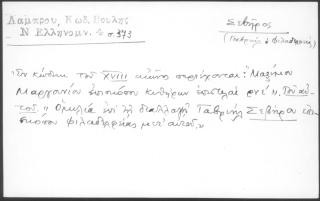 Λάμπρου, Κωδ. Βουλῆς
Ν. Ἑλληνομν. 2 σ. 373
Σεβῆρος
(Γαβριὴλ ὁ Φιλαδελφείας)
Ἐν κώδικι τοῦ XVIII αἰῶνος περιέχονται: "Μαξίμου
Μαργουνίου ἐπισκόπου Κυθήρων ἐπιστολαὶ ρνε΄". Τοῦ αὐ-
τοῦ. "Ὁμιλία ἐπὶ τῇ διαλλαγῇ Γαβριὴλ Σεβήρου ἐπι-
σκόπου Φιλαδελφείας μετ' αὐτοῦ."